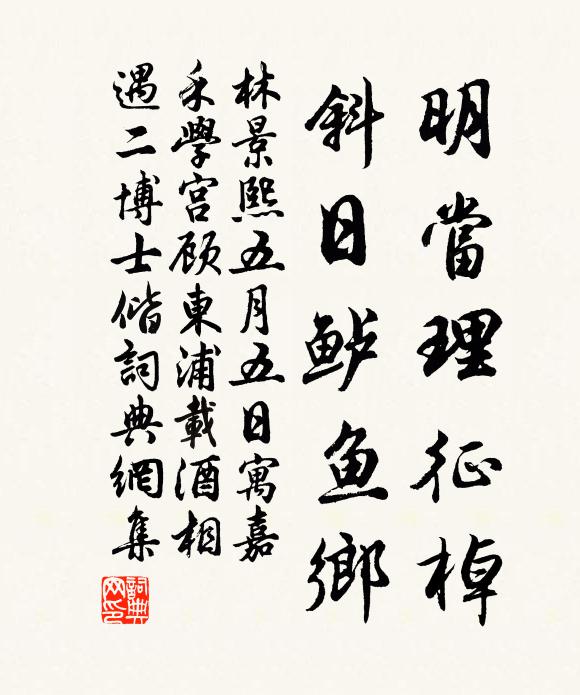 明當理征棹
斜日鲈鱼鄉
林景熙五月五日寓嘉
禾學宫顾東浦載酒相
遇二博士偕詞典網集
詞典
网印